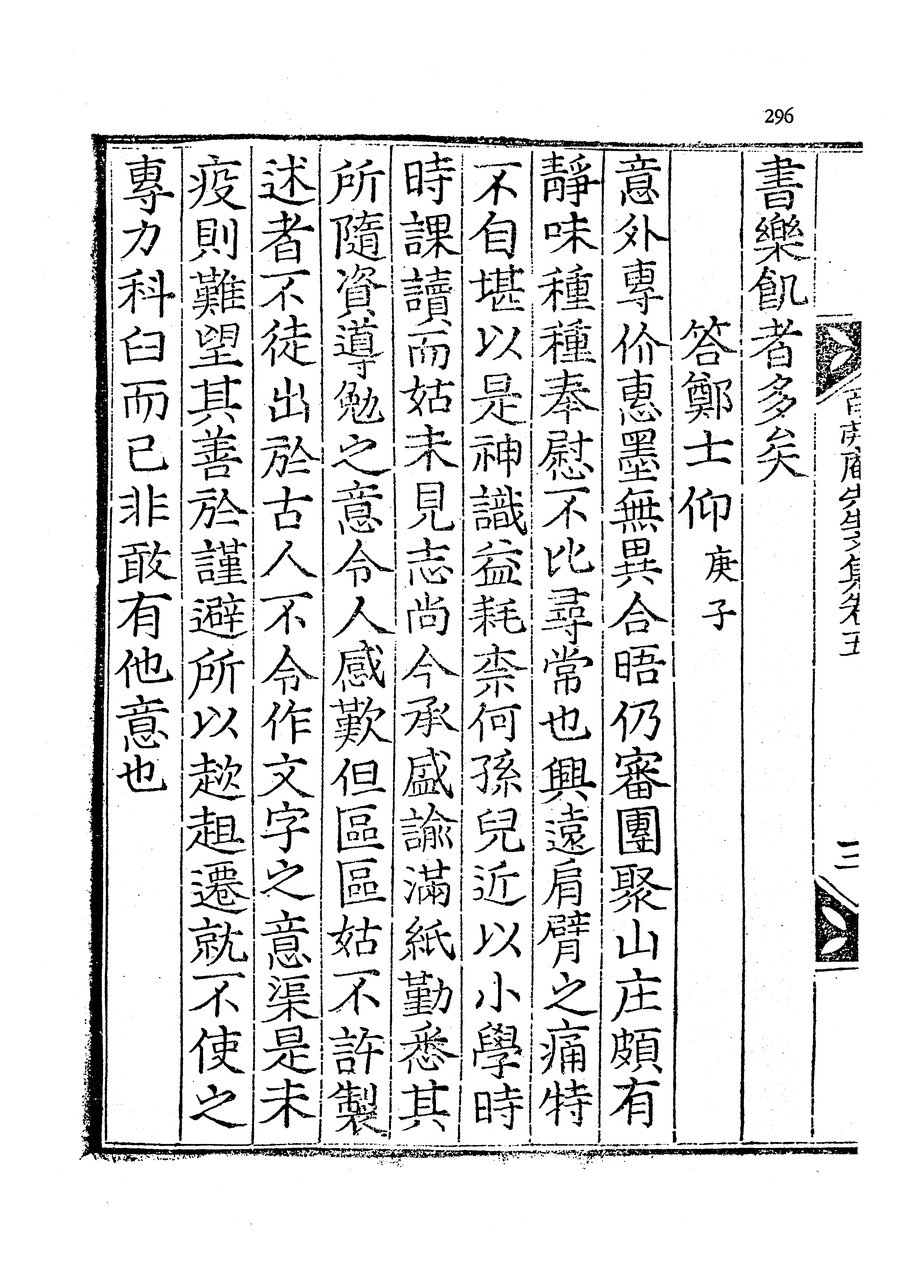 296
書樂飢者多矣
答鄭士仰庚子
意外專价惠墨無異合晤仍審團聚山庄頗有
靜味種種奉慰不比尋常也興遠肩臂之痛特
不自堪以是神識益耗柰何孫兒近以小學時
時課讀而姑未見志尚今承盛諭滿紙勤悉其
所隨資導勉之意令人感歎但區區姑不許製
述者不徒出於古人不令作文字之意渠是未
疫則難望其善於謹避所以趑趄遷就不使之
專力科臼而已非敢有他意也
庵先生文集卷五
三